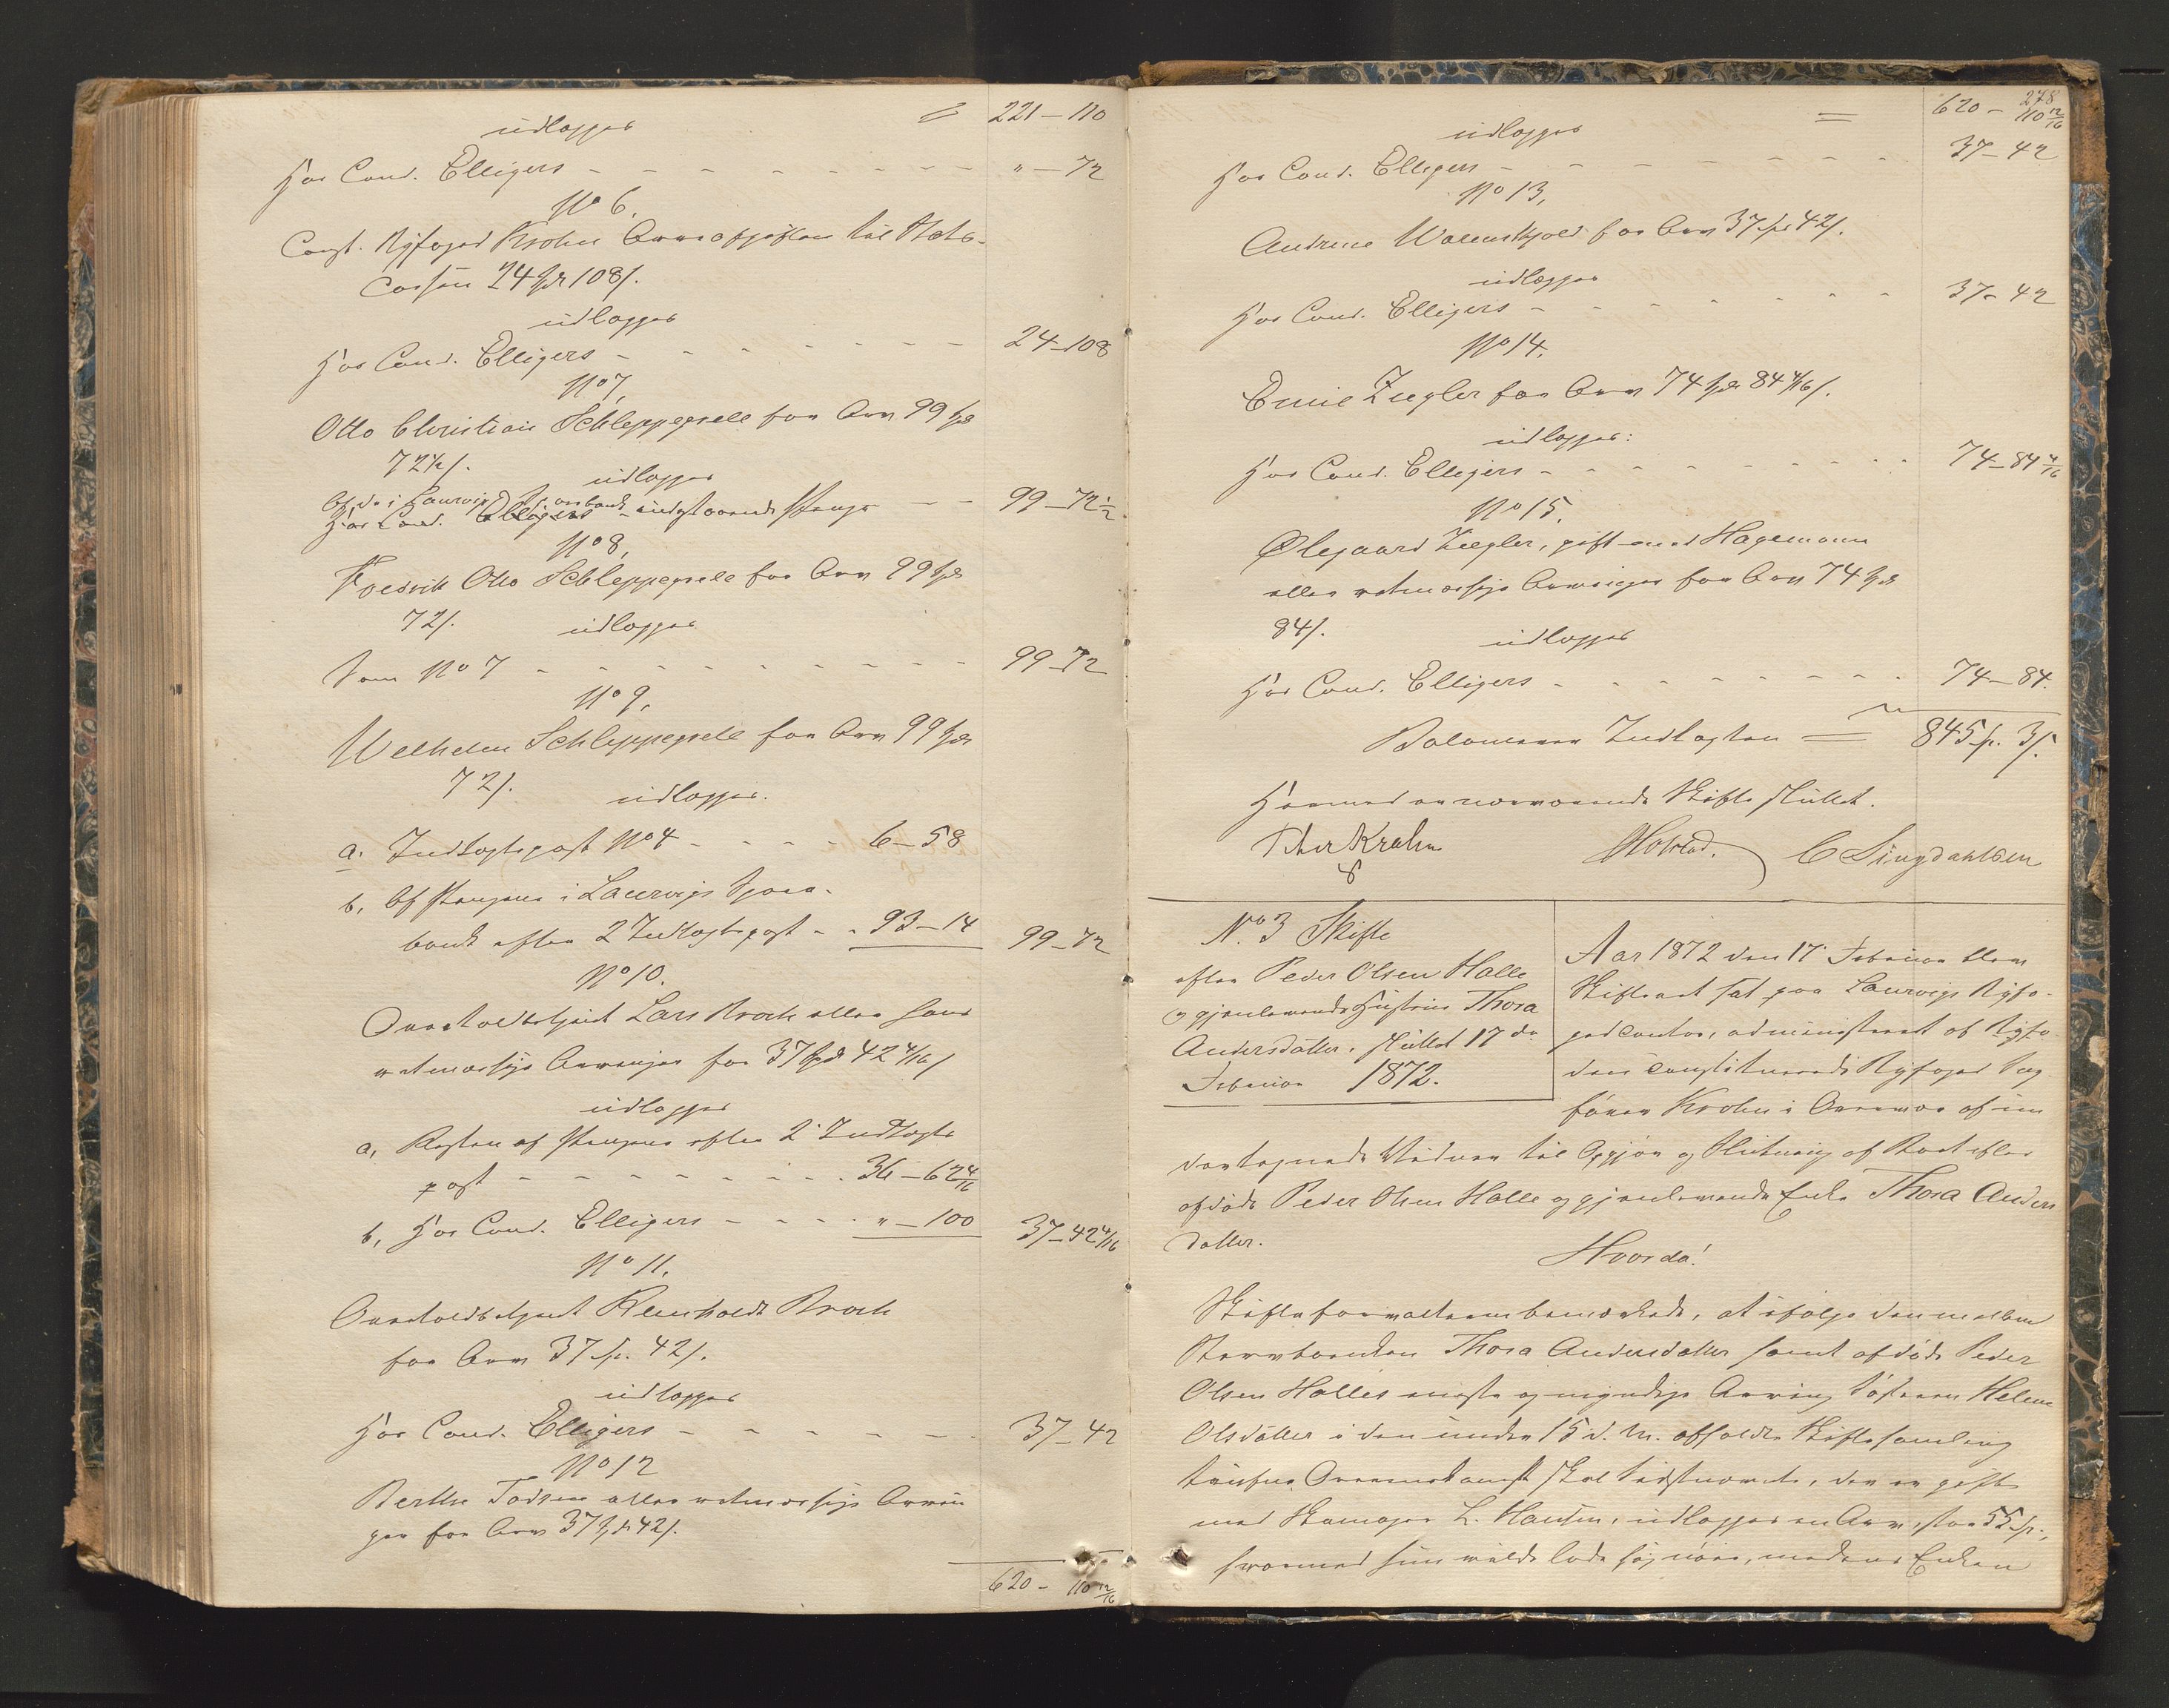 221 – 110
udlægges
hos Cand. Elligers – – – – – – – – „ – 72
No 6.
Const. Byfoged Krohn Arveafgiften til Stats-
cassen 24 Spd 108 s.
udlægges
hos Cand. Elligers – – – – – – – 24 – 108
No 7.
Otto Christian Schleppegrell for Arv 99 Spd
72½ s.
udlægges
Af de i Laurvigs Sparebank indestaaende Penge – – 99 – 72½
hos Cand. Elligers
No 8.
Fredrik Otto Schleppegrell for Arv 99 Spd
72 s.
udlægges
Som No 7 – – – – – – – – – 99 – 72
No 9.
Wilhelm Schleppegrell for Arv 99 Spd
72 s.
udlægges.
a. Indtægtspost No 4 – – – – 6 – 58
b, Af Pengene i Laurvigs Spare-
bank efter 2 Indtægtspost – – 93 – 14 99 – 72
No 10.
Overtoldbetjent Lars Broch eller hans
retmæssige Arvinger for 37 Spd 42 4/16 s
udlægges
a, Resten af Pengene efter 2. Indtægts
post – – – – – – – – 36 – 62 4/16
b, hos Cand. Elligers – – – – „ – 100 37 – 42 4/16
No 11.
Overtoldbetjent Reinholdt Broch
for Arv 37 Sp. 42 s.
udlægges
hos Cand. Elligers – – – – – – 37 – 42
No 12
Berthe Todsen eller retmæssige Arvin
ger for Arv 37 Spd 42 s.
620 – 110 12/16
278
620 – 110 12/16
udlægges
hos Cand. Elligers – – – – – – – – 37 – 42
No 13,
Andrine Walenskjold for Arv 37 Sp 42 s.
udlægges
hos Cand. Elligers – – – – – – – 37 – 42
No 14.
Emil Ziegler for Arv 74 Spd 84 4/16 s.
udlægges:
hos Cand. Elligers – – – – – – – – 74 – 84 4/16
No 15.
Ølegaard Ziegler, gift med Hagemann
eller retmæssige Arvinger for Arv 74 Spd
84 s.
udlægges
hos Cand. Elligers – – – – – – – – 74 – 84.
Balancerer Indtægten = 845 Sp. 3 s.
Hermed er nærværende Skifte sluttet.
Krohn C Lingdahlsen
No. 3 Skifte
efter Peder Olsen Halle
og gjenlevende Hustru Thora
Andersdatter. sluttet 17 de
Februar 1872.
Aar 1872 den 17. Februar blev
Skifteret sat paa Laurvigs Byfo-
gedcontor, administreret af Byfo-
den constituerede Byfoged Sag
fører Krohn i Overvær af un
dertegnede Vidner til Opgjør og Slutning af Boet efter
afdøde Peder Olsen Halle og gjenlevende Enke Thora Anders
datter.
Hvorda!
Skifteforvalteren bemærkede, at ifølge den mellem
Stervboenken Thora Andersdatter samt afdøde Peder
Olsen Halles eneste og myndige Arving Søsteren Helene
Olsdatter i den under 15 d. M. afholdte Skiftesamling
trufne Overenskomst skal sidstnævnte, der er gift
med Skomager L. Hansen, udlægges en Arv, stor 55 Sp.,
hvormed hun vilde lade sig nøie, medens Enken